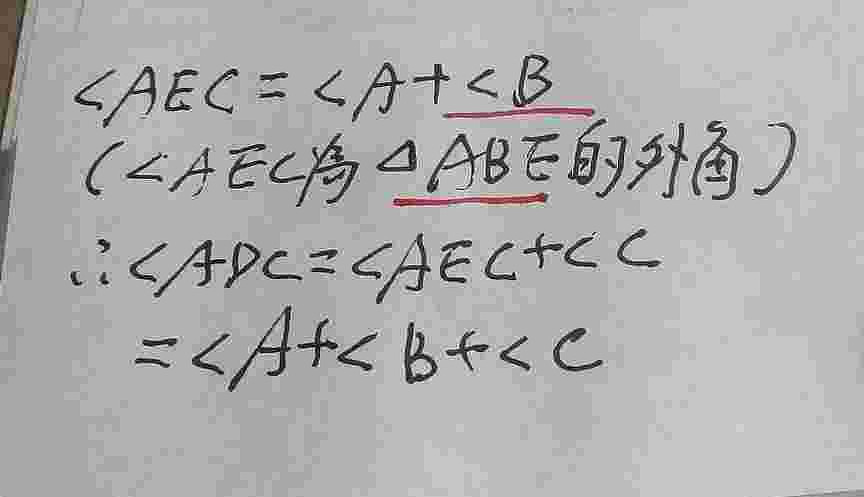 <AEC=<A+<B
(<AEC為△ABE的外角)
∴<ADC=<AEC+<C
=<A+<B+<C